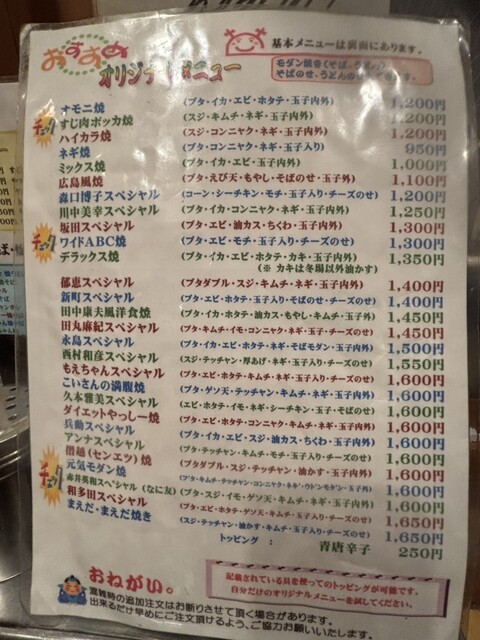 おすすめ
オリジナルメニュー
基本メニューは裏面にあります。
モダン焼き(そば・うどん)
そばのせ、うどんのせ
チェック
オモニ焼 (ブタ・イカ・エビ・ホタテ・玉子内外) 1,200円
すじ肉ポッカ焼 (スジ・キムチ・ネギ・玉子内外) 1,200円
ハイカラ焼 (スジ・コンニャク・ネギ・玉子内外) 1,200円
ネギ焼 (ブタ・コンニャク・ネギ・玉子入り) 950円
ミックス焼 (ブタ・イカ・エビ・玉子外) 1,000円
広島風焼 (ブタ・えび天・もやし・そばのせ・玉子外) 1,100円
森口博子スペシャル (コーン・シーチキン・モチ・玉子入り・チーズのせ) 1,200円
川中美幸スペシャル (ブタ・イカ・コンニャク・ネギ・玉子内外) 1,250円
坂田スペシャル (ブタ・エビ・油カス・ちくわ・玉子外) 1,300円
チェック
ワイドABC焼 (ブタ・エビ・モチ・玉子入り・チーズのせ) 1,300円
デラックス焼 (ブタ・イカ・エビ・ホタテ・カキ・玉子内外) 1,350円
(※ カキは冬場以外油かす)
郁恵スペシャル (ブタダブル・スジ・キムチ・ネギ・玉子外) 1,400円
新町スペシャル (ブタ・エビ・ホタテ・玉子入り・そばのせ・チーズのせ) 1,400円
田中康夫風洋食焼 (ブタ・イカ・ホタテ・油カス・もやし・キムチ・玉子外) 1,450円
田丸麻紀スペシャル (ブタ・キムチ・イモ・コンニャク・ネギ・玉子・チーズのせ) 1,450円
永島スペシャル (ブタ・イカ・エビ・ホタテ・ネギ・そばモダン・玉子内外) 1,500円
西村和彦スペシャル (スジ・テッチャン・厚あげ・ネギ・玉子入り・チーズのせ) 1,550円
もえちゃんスペシャル (ブタ・エビ・ホタテ・キムチ・モチ・ネギ・玉子外) 1,600円
こいさんの満腹焼 (ブタ・ゲソ天・テッチャン・キムチ・ネギ・玉子外) 1,600円
久本雅美スペシャル (エビ・ホタテ・イモ・ネギ・シーチキン・玉子・そばのせ) 1,600円
ダイエットやっしー焼 (ブタ・エビ・ホタテ・キムチ・コンニャク・ネギ・玉子外) 1,600円
兵動スペシャル (ブタ・イカ・エビ・スジ・油カス・ちくわ・玉子内外) 1,600円
アンナスペシャル (ブタ・テッチャン・キムチ・モチ・ネギ・玉子入り・チーズのせ) 1,600円
僭越(センエツ)焼 (ブタダブル・スジ・テッチャン・油かす・玉子外) 1,600円
チェック
元気モダン焼 (ブタ・キムチ・テッチャン・コンニャク・ネギ・ウドンモダン・玉子外) 1,600円
赤井英和スペシャル(なに友) (ブタ・スジ・イモ・ゲソ天・キムチ・ネギ・玉子内外) 1,600円
和多田スペシャル (ブタ・エビ・ホテテ・キムチ・ネギ・玉子入り・チーズのせ) 1,650円
まえだ・まえだ焼き (スジ・テッチャン・油かす・キムチ・玉子入り・チーズのせ) 1,650円
トッピング : 青唐辛子 250円
おねがい。
混雑時の追加注文はお断りさせて頂く場合があります。
出来るだけ早めにご注文頂けるよう、ご協力お願いいたします。
記載されている具を使ってのトッピングが可能です。
自分だけのオリジナルメニューを試してください。